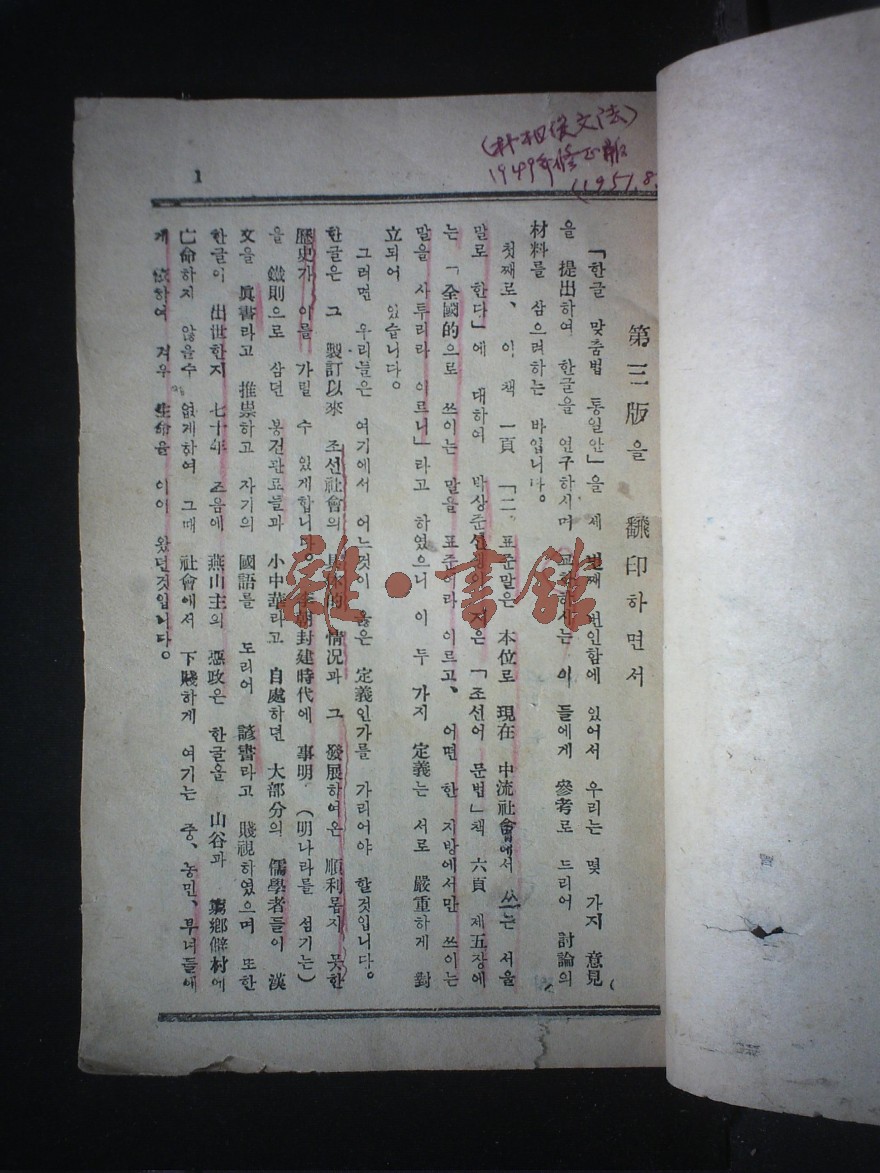 1
1949年修正版
(1951.8.
第三版을 飜印하면서
「한글 맞춤법 통일안」을 세 번째 번인함에 있어서 우리는 몇 가지 意見
을 提出하여 한글을 연구하시며 교수하시는 이 들에게 參考로 드리어 討論의
材料를 삼으려하는 바입니다。
첫째로、이 책 一頁 「二 표준말은 本位로 現在 中流社會에서 쓰는 서울
말로 한다」에 대하여 박상준선생이 지은 「조선어 문법」책 六頁 제五장에
는 「全國的으로 쓰이는 말을 표준어라 이르고、 어떤 한 지방에서만 쓰이는
말을 사투리라 이르니」라고 하였으니 이 두 가지 定義는 서로 嚴重하게 對
立되어 있습니다。
그러면 우리들은 여기에서 어느것이 옳은 定義인가를 가리어야 할것입니다。
한글은 그 製訂以來 조선社會의 具体的 情況과 그 發展하여온 順利롭지 못한
歷史가 이를 가릴 수 있게합니다。李朝封建時代에 事明 (明나라를 섬기는)
을 鐵則으로 삼던 봉건관료들과 小中華라고 自處하던 大部分의 儒學者들이 漢
文을 眞書라고 推崇하고 자기의 國語를 도리어 諺書라고 賤視하였으며 또한
한글이 出世한지 七十年 즈음에 燕山主의 惡政은 한글을 山谷과 窮鄕僻村에
亡命하지 않을수 없게하여 그때 社會에서 下賤하게 여기는 중、농민、부녀들에
게 依하여 겨우 生命을 이어 왔던것입니다。
雜·書館